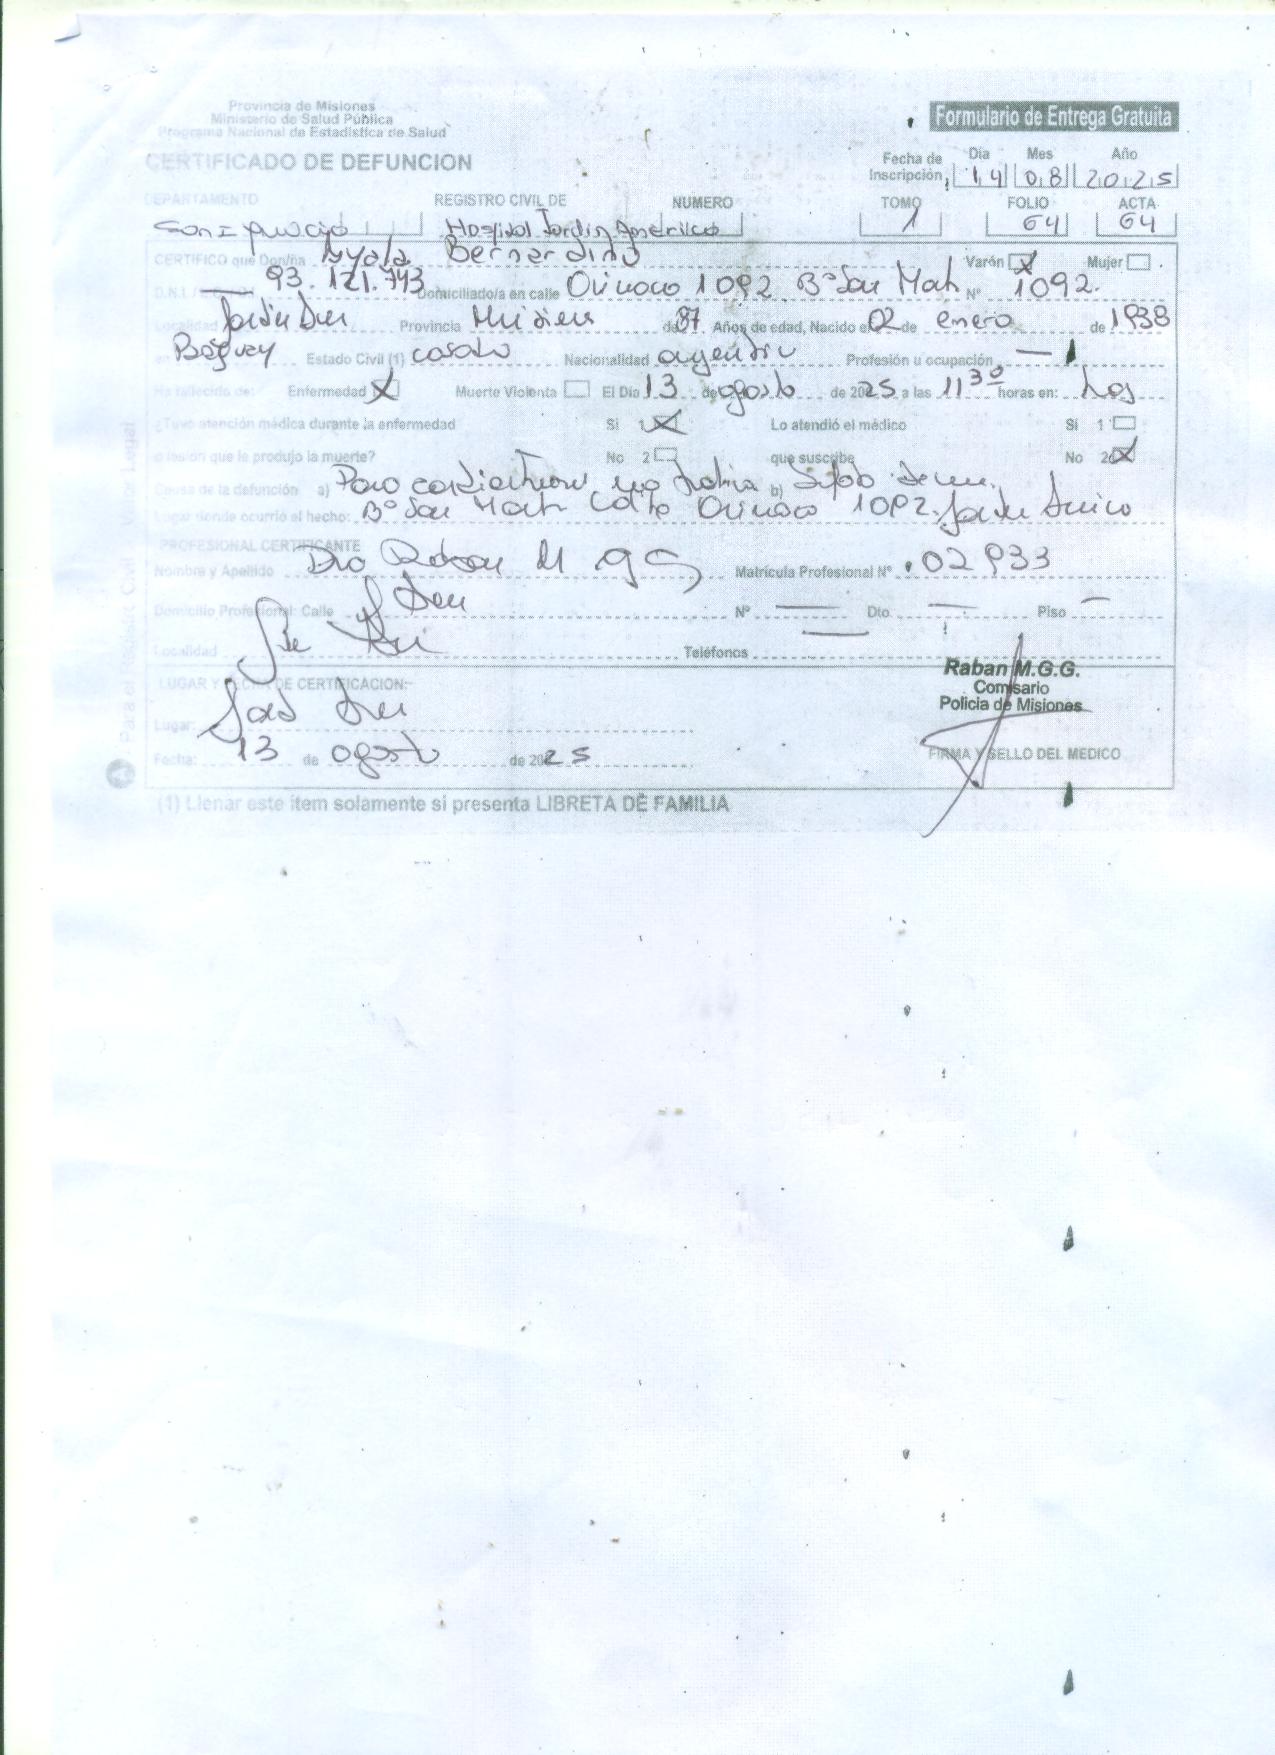 Provincia de Misiones
Ministerio de Salud Pública
Programa Nacional de Estadística de Salud
Formulario de Entrega Gratuita
CERTIFICADO DE DEFUNCION
Fecha de Inscripción Día Mes Año
14 08 2025
DEPARTAMENTO REGISTRO CIVIL DE NUMERO TOMO FOLIO ACTA
Hospital Jardin America 1 64 64
CERTIFICO que Don/ña Ayala Bernardino Varón X Mujer
D.N.I. 93.121.743 Domiciliado/a en calle Orinoco 1092 B° San Mart N° 1092.
Localidad Provincia Misiones de 87 Años de edad, Nacido el 02 de enero de 1938
en Estado Civil (1) casado Nacionalidad argentino Profesión u ocupación —
Ha fallecido de: Enfermedad X Muerte Violenta El Día 13 de agosto de 2025 a las 11 30 horas en:
¿Tuvo atención médica durante la enfermedad Si 1 X Lo atendió el médico Si 1
o lesión que le produjo la muerte? No 2 que suscribe No 2 X
Causa de la defunción a) Paro b)
Lugar donde ocurrió el hecho: B° San Mart Calle Orinoco 1092.
PROFESIONAL CERTIFICANTE
Nombre y Apellido Matrícula Profesional N° 02933
Domicilio Profesional: Calle N° — Dto — Piso —
Localidad Teléfonos —
Raban M.G.G.
Comisario
Policia de Misiones
LUGAR Y FECHA DE CERTIFICACION:
Lugar:
Fecha: 13 de agosto de 2025
FIRMA Y SELLO DEL MEDICO
(1) Llenar este ítem solamente si presenta LIBRETA DE FAMILIA